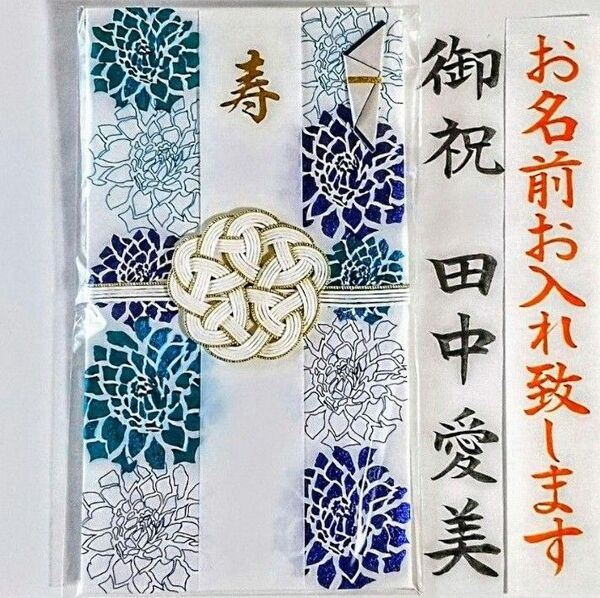 お名前お入れ致します
御祝 田中愛美
寿